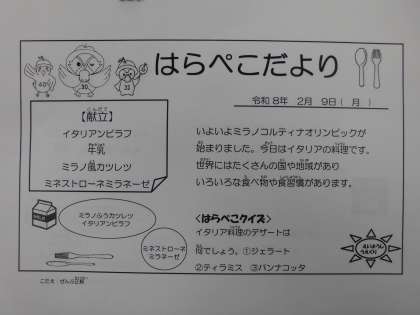 はらぺこだより
令和8年 2月 9日( 月 )
【献立】
イタリアンピラフ
牛乳
ミラノ風カツレツ
ミネストローネミラネーゼ
いよいよミラノコルティナオリンピックが
始まりました。今日はイタリアの料理です。
世界にはたくさんの国や地域があり
いろいろな食べ物や食習慣があります。
ミラノふうカツレツ
イタリアンピラフ
ミネストローネ
ミラネーゼ
<はらぺこクイズ>
イタリア料理のデザートは
何でしょう。①ジェラート
②ティラミス ③パンナコッタ
こたえ:ぜんぶ正解